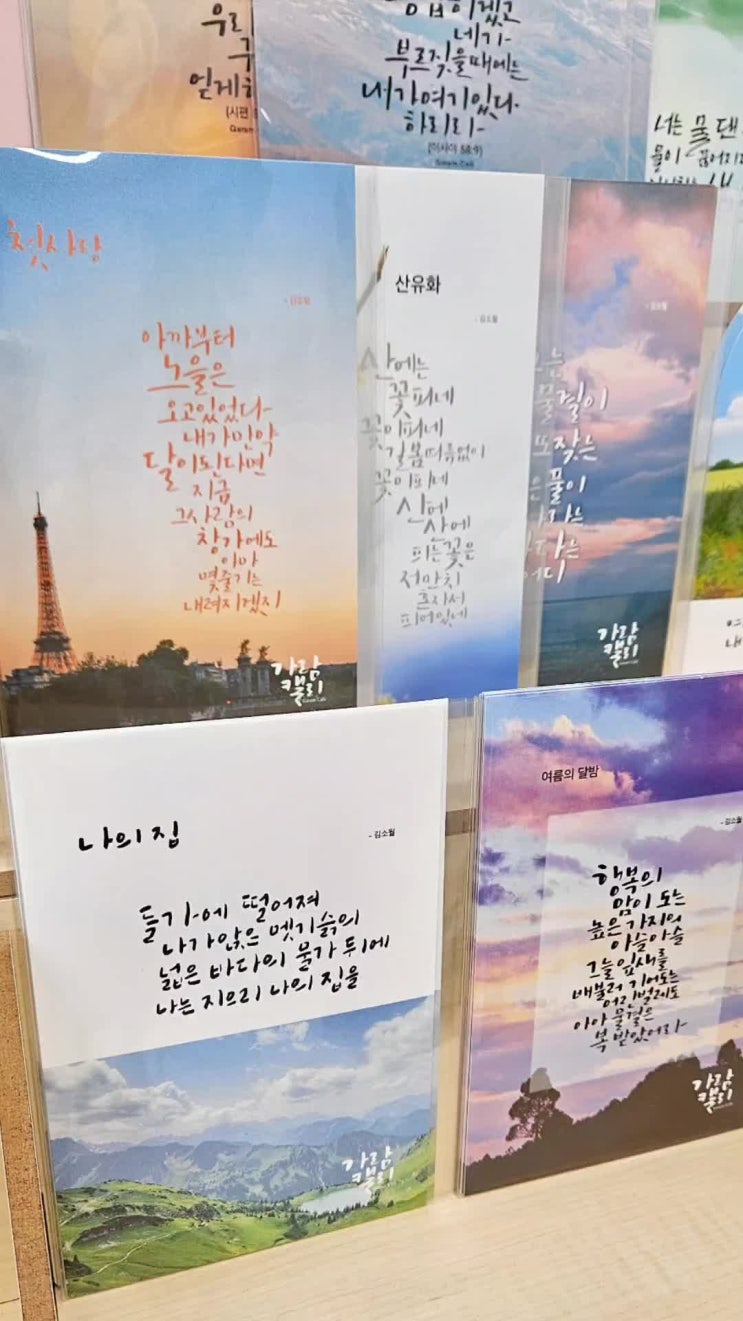 우리
구
얻게하
(시편
네가
부르짖을때에는
내가여기있다
하리라
(이사야 58:9)
너는 물댄
물이 끊어지
첫사랑
- 김소월
아까부터
노을은
오고있었다
내가만약
달이된다면
지금
그사람의
창가에도
아마
몇줄기는
내려지겠지
가람
캘리
산유화
- 김소월
산에는
꽃피네
꽃이피네
갈봄여름없이
꽃이피네
산에
산에
피는꽃은
저만치
혼자서
피어있네
- 김소월
물결이
또잦는
풀이
가람
캘리
나의 집
- 김소월
들가에 떨어져
나가앉은 멧기슭의
넓은 바다의 물가 뒤에
나는 지으리 나의 집을
가람
캘리
여름의 달밤
- 김소월
행복의
맘이 도는
높은 가지의
아슬아슬
그늘 잎새를
배불러 기어도는
어린벌레도
아아 물결은
복 받았어라
가람
캘리